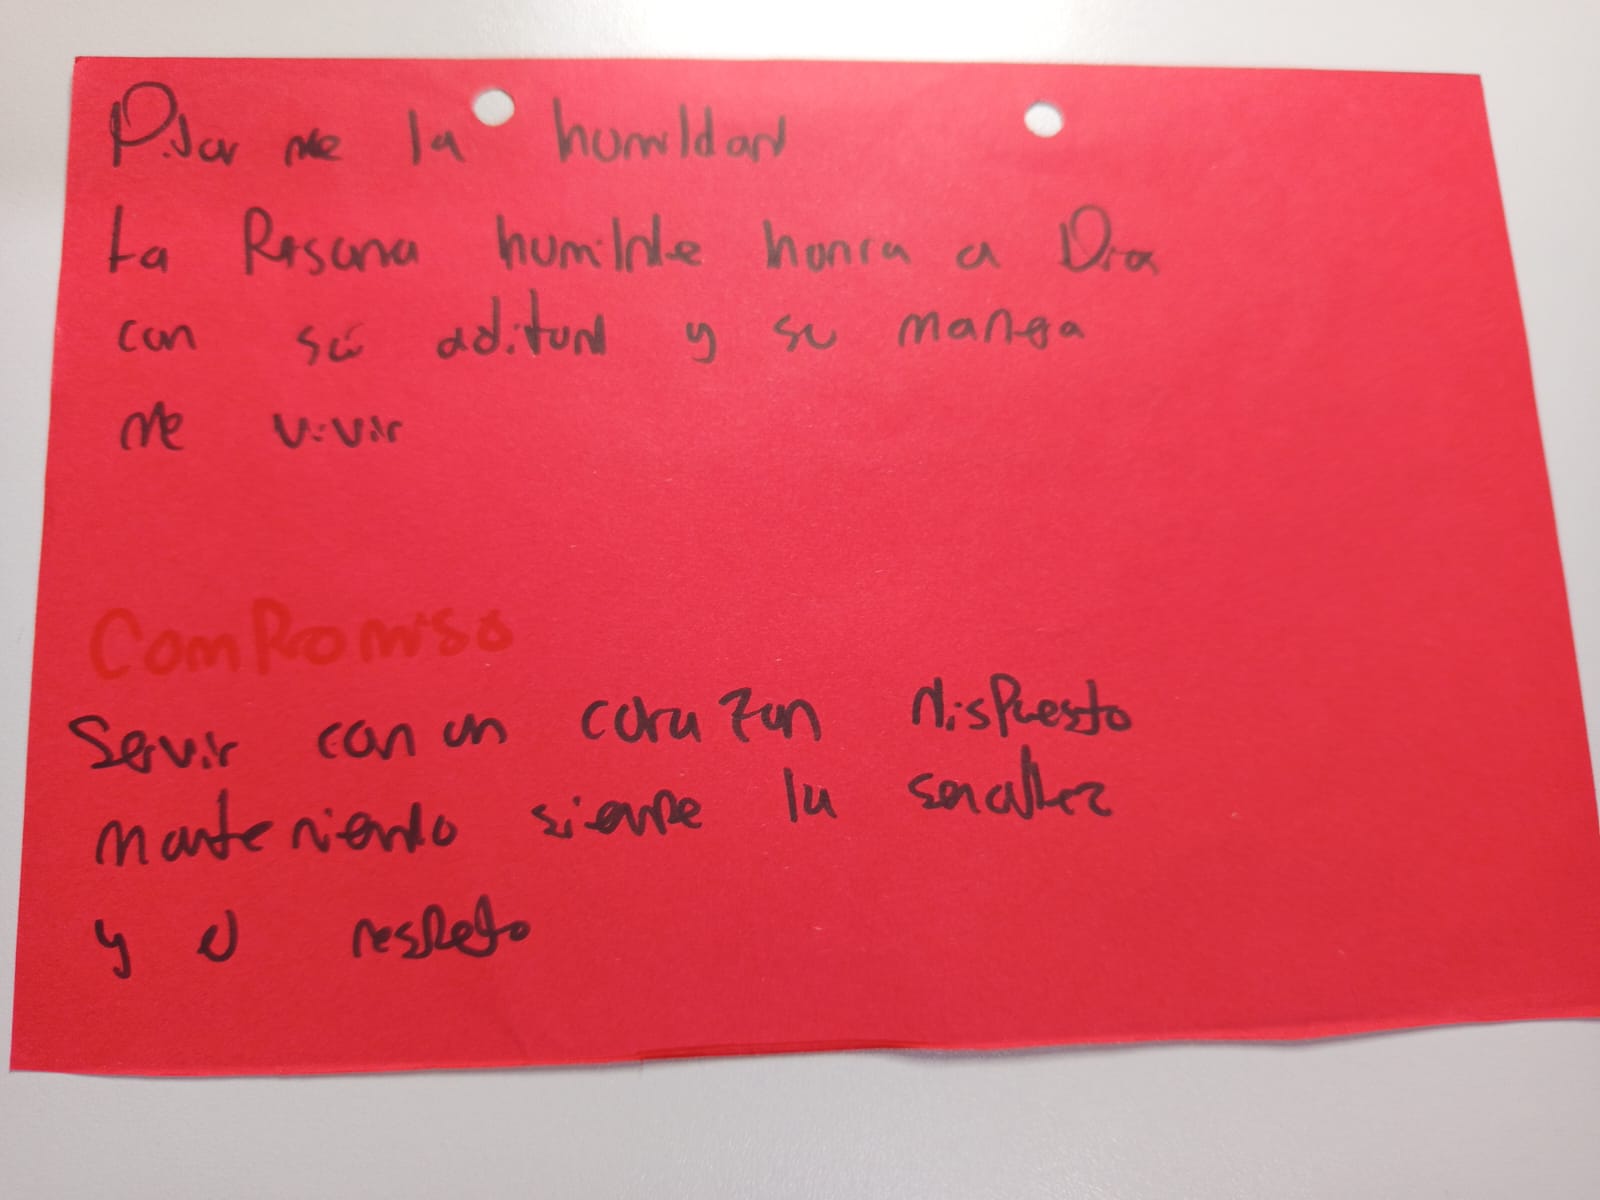 Pilar de la humildad
La Persona humilde honra a Dios
con su actitud y su manera
de vivir
Compromiso
Servir con un corazon dispuesto
manteniendo siempre la sencillez
y el respeto